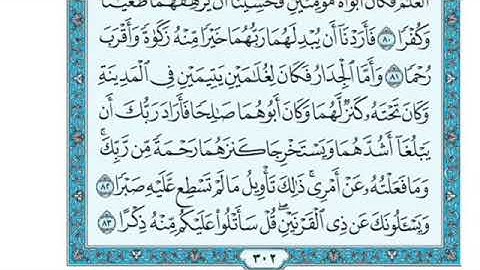 ٱلۡغُلَٰمُ فَكَانَ أَبَوَاهُ مُؤۡمِنَيۡنِ فَخَشِينَآ أَن يُرۡهِقَهُمَا طُغۡيَٰنٗا
وَكُفۡرٗا ٨٠ فَأَرَدۡنَآ أَن يُبۡدِلَهُمَا رَبُّهُمَا خَيۡرٗا مِّنۡهُ زَكَوٰةٗ وَأَقۡرَبَ
رُحۡمٗا ٨١ وَأَمَّا ٱلۡجِدَارُ فَكَانَ لِغُلَٰمَيۡنِ يَتِيمَيۡنِ فِي ٱلۡمَدِينَةِ
وَكَانَ تَحۡتَهُۥ كَنزٞ لَّهُمَا وَكَانَ أَبُوهُمَا صَٰلِحٗا فَأَرَادَ رَبُّكَ أَن
يَبۡلُغَآ أَشُدَّهُمَا وَيَسۡتَخۡرِجَا كَنزَهُمَا رَحۡمَةٗ مِّن رَّبِّكَۚ
وَمَا فَعَلۡتُهُۥ عَنۡ أَمۡرِيۚ ذَٰلِكَ تَأۡوِيلُ مَا لَمۡ تَسۡطِع عَّلَيۡهِ صَبۡرٗا ٨٢
وَيَسۡـَٔلُونَكَ عَن ذِي ٱلۡقَرۡنَيۡنِۖ قُلۡ سَأَتۡلُواْ عَلَيۡكُم مِّنۡهُ ذِكۡرًا ٨٣
٣٠٢